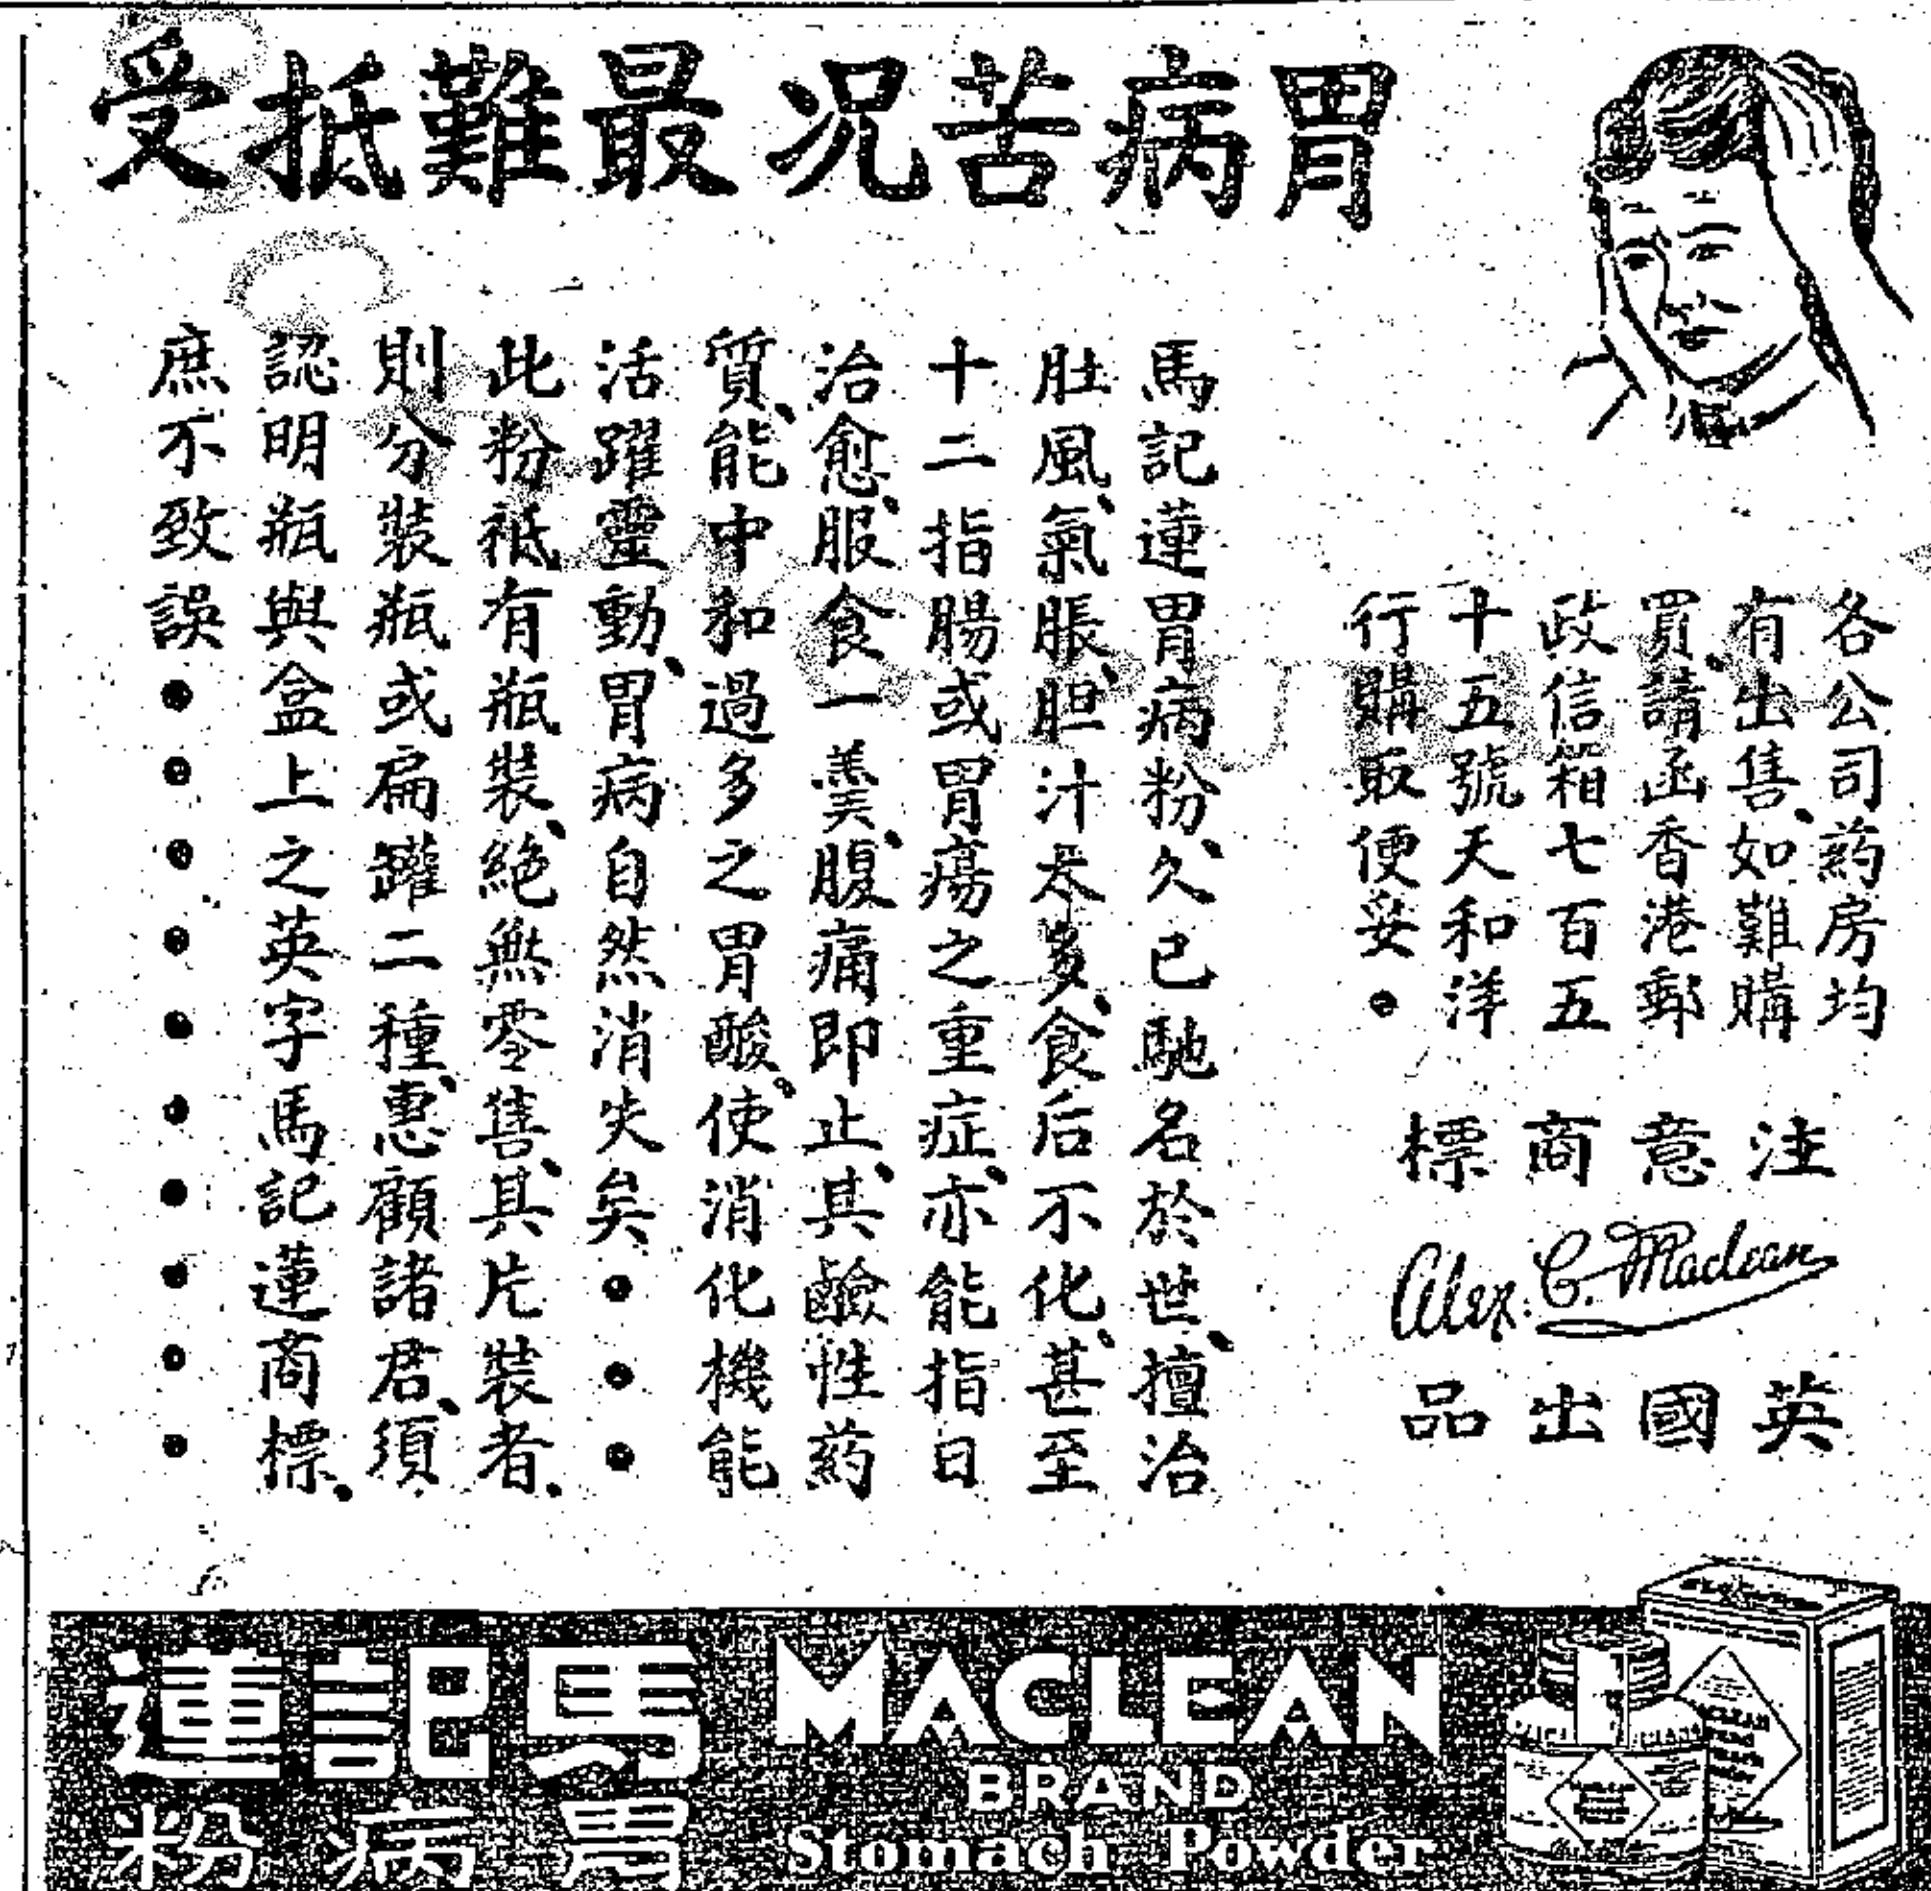 胃病苦况最難抵受
各公司葯房均
有出售、如難購
買、請函香港郵
政信箱七百五
十五號天和洋
行購取便妥。
注意商標
Alex. C. Maclean
英國出品
馬記蓮胃病粉、久已馳名於世、擅治
肚風、氣脹、胆汁太多、食后不化、甚至
十二指腸或胃瘍之重症、亦能指日
治愈、服食一羹、腹痛即止、其鹼性葯
質、能中和過多之胃酸、使消化機能
活躍靈動、胃病自然消失矣●●●
此粉祗有瓶裝、絕無零售、其片裝者、
則分裝瓶或扁罐二種、惠顧諸君、須
認明瓶與盒上之英字馬記蓮商標、
庶不致誤●●●●●●●●●●
馬記蓮
胃病粉
MACLEAN
BRAND
Stomach Powder